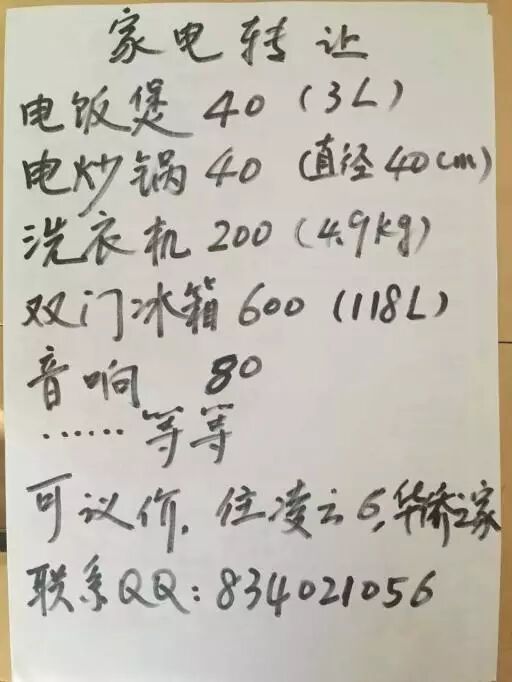 家电转让
电饭煲 40 (3L)
电炒锅 40 (直径40cm)
洗衣机 200 (4.9kg)
双门冰箱 600 (118L)
音响 80
…… 等等
可议价, 住凌云6, 华侨之家
联系QQ: 834021056